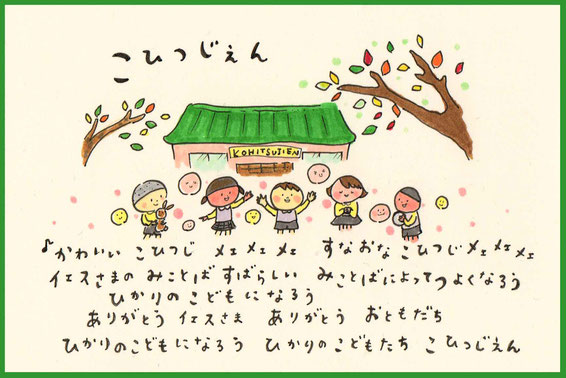 こひつじえん
KOHITSUJIEN
♪かわいい こひつじ メェ メェ メェ すなおな こひつじ メェ メェ メェ
イエスさまの みことば すばらしい みことばによって つよくなろう
ひかりの こどもに なろう
ありがとう イエスさま ありがとう おともだち
ひかりのこどもに なろう ひかりの こどもたち こひつじえん